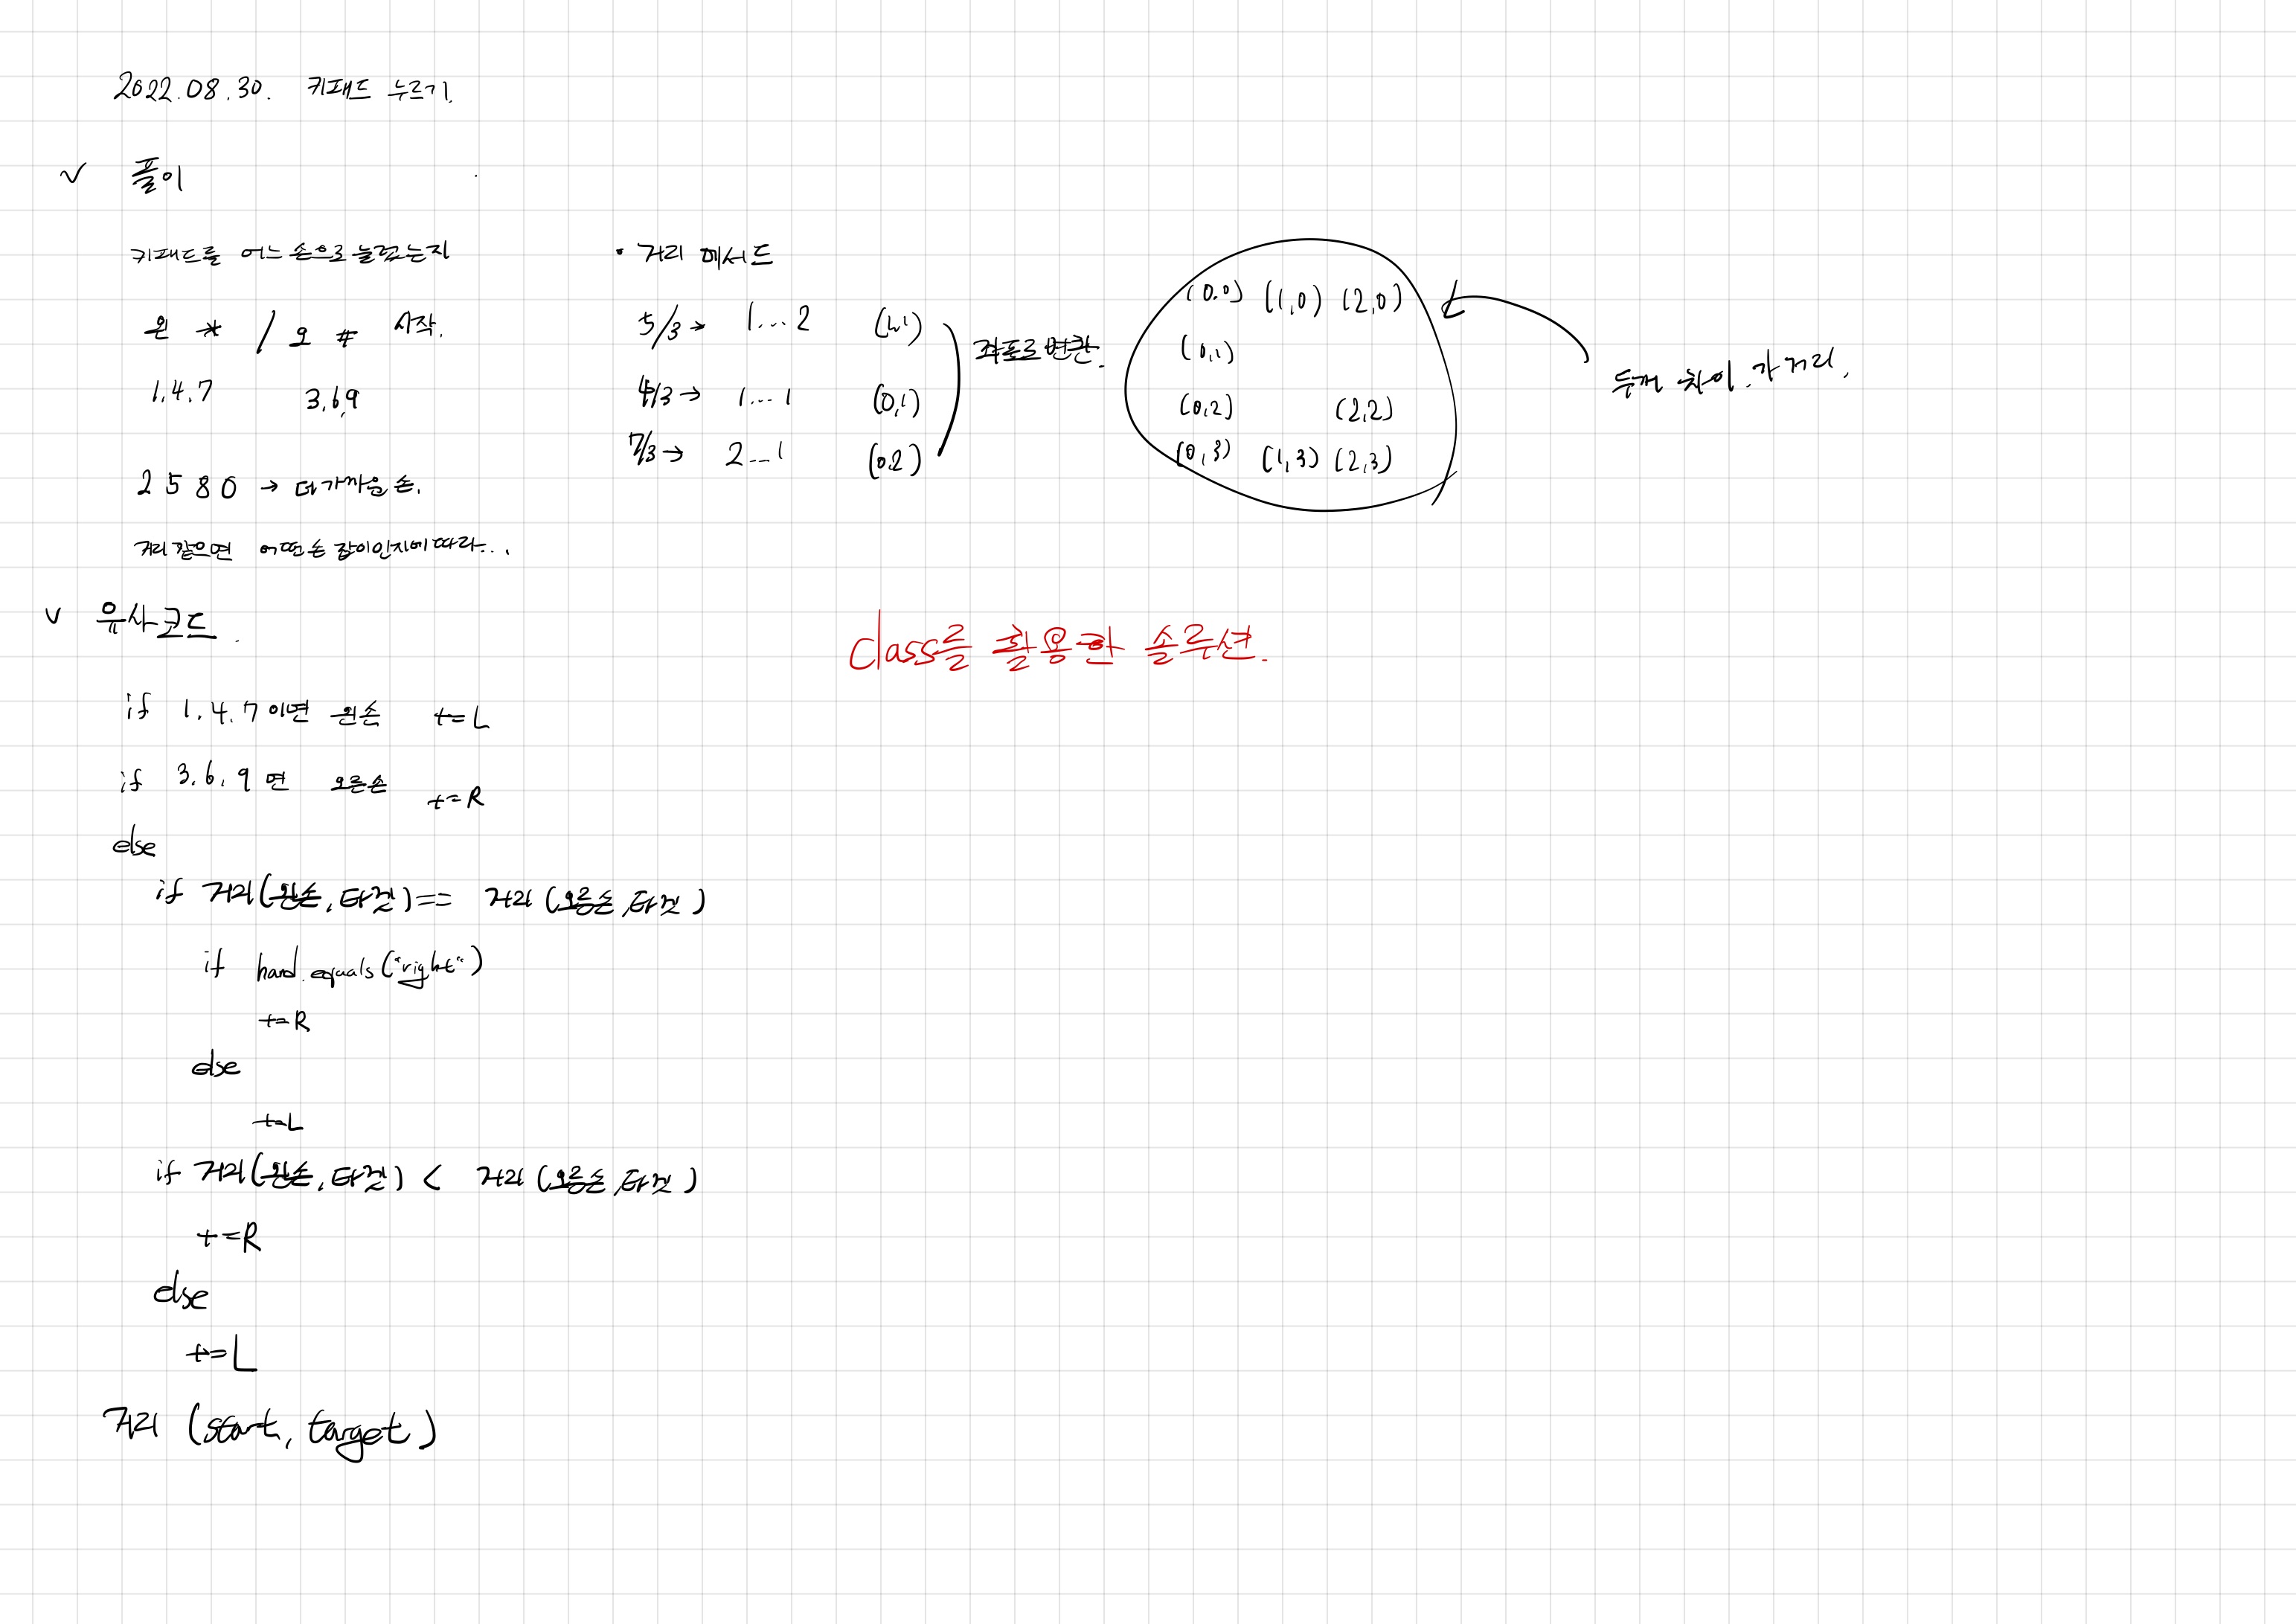 2022.08.30. 키패드 누르기.
✓ 풀이
키패드를 어느 손으로 눌렀는지
왼 * / 오 # 시작.
1.4.7 3.6.9
2 5 8 0 → 더 가까운 손.
거리 같으면 어떤손 잡이인지에 따라...
• 거리 메서드
5/3 → 1...2 (1,1)
4/3 → 1...1 (0,1)
7/3 → 2...1 (0,2)
좌표로 변환.
(0,0) (1,0) (2,0)
(0,1)
(0,2) (2,2)
(0,3) (1,3) (2,3)
두개 차이가 거리.
✓ 유사코드.
class를 활용한 솔루션.
if 1.4.7 이면 왼손 += L
if 3.6.9 면 오른손 += R
else
if 거리(왼손, 타겟) == 거리(오른손, 타겟)
if hand.equals("right")
+= R
else
+= L
if 거리(왼손, 타겟) < 거리(오른손, 타겟)
+= R
else
+= L
거리 (start, target)